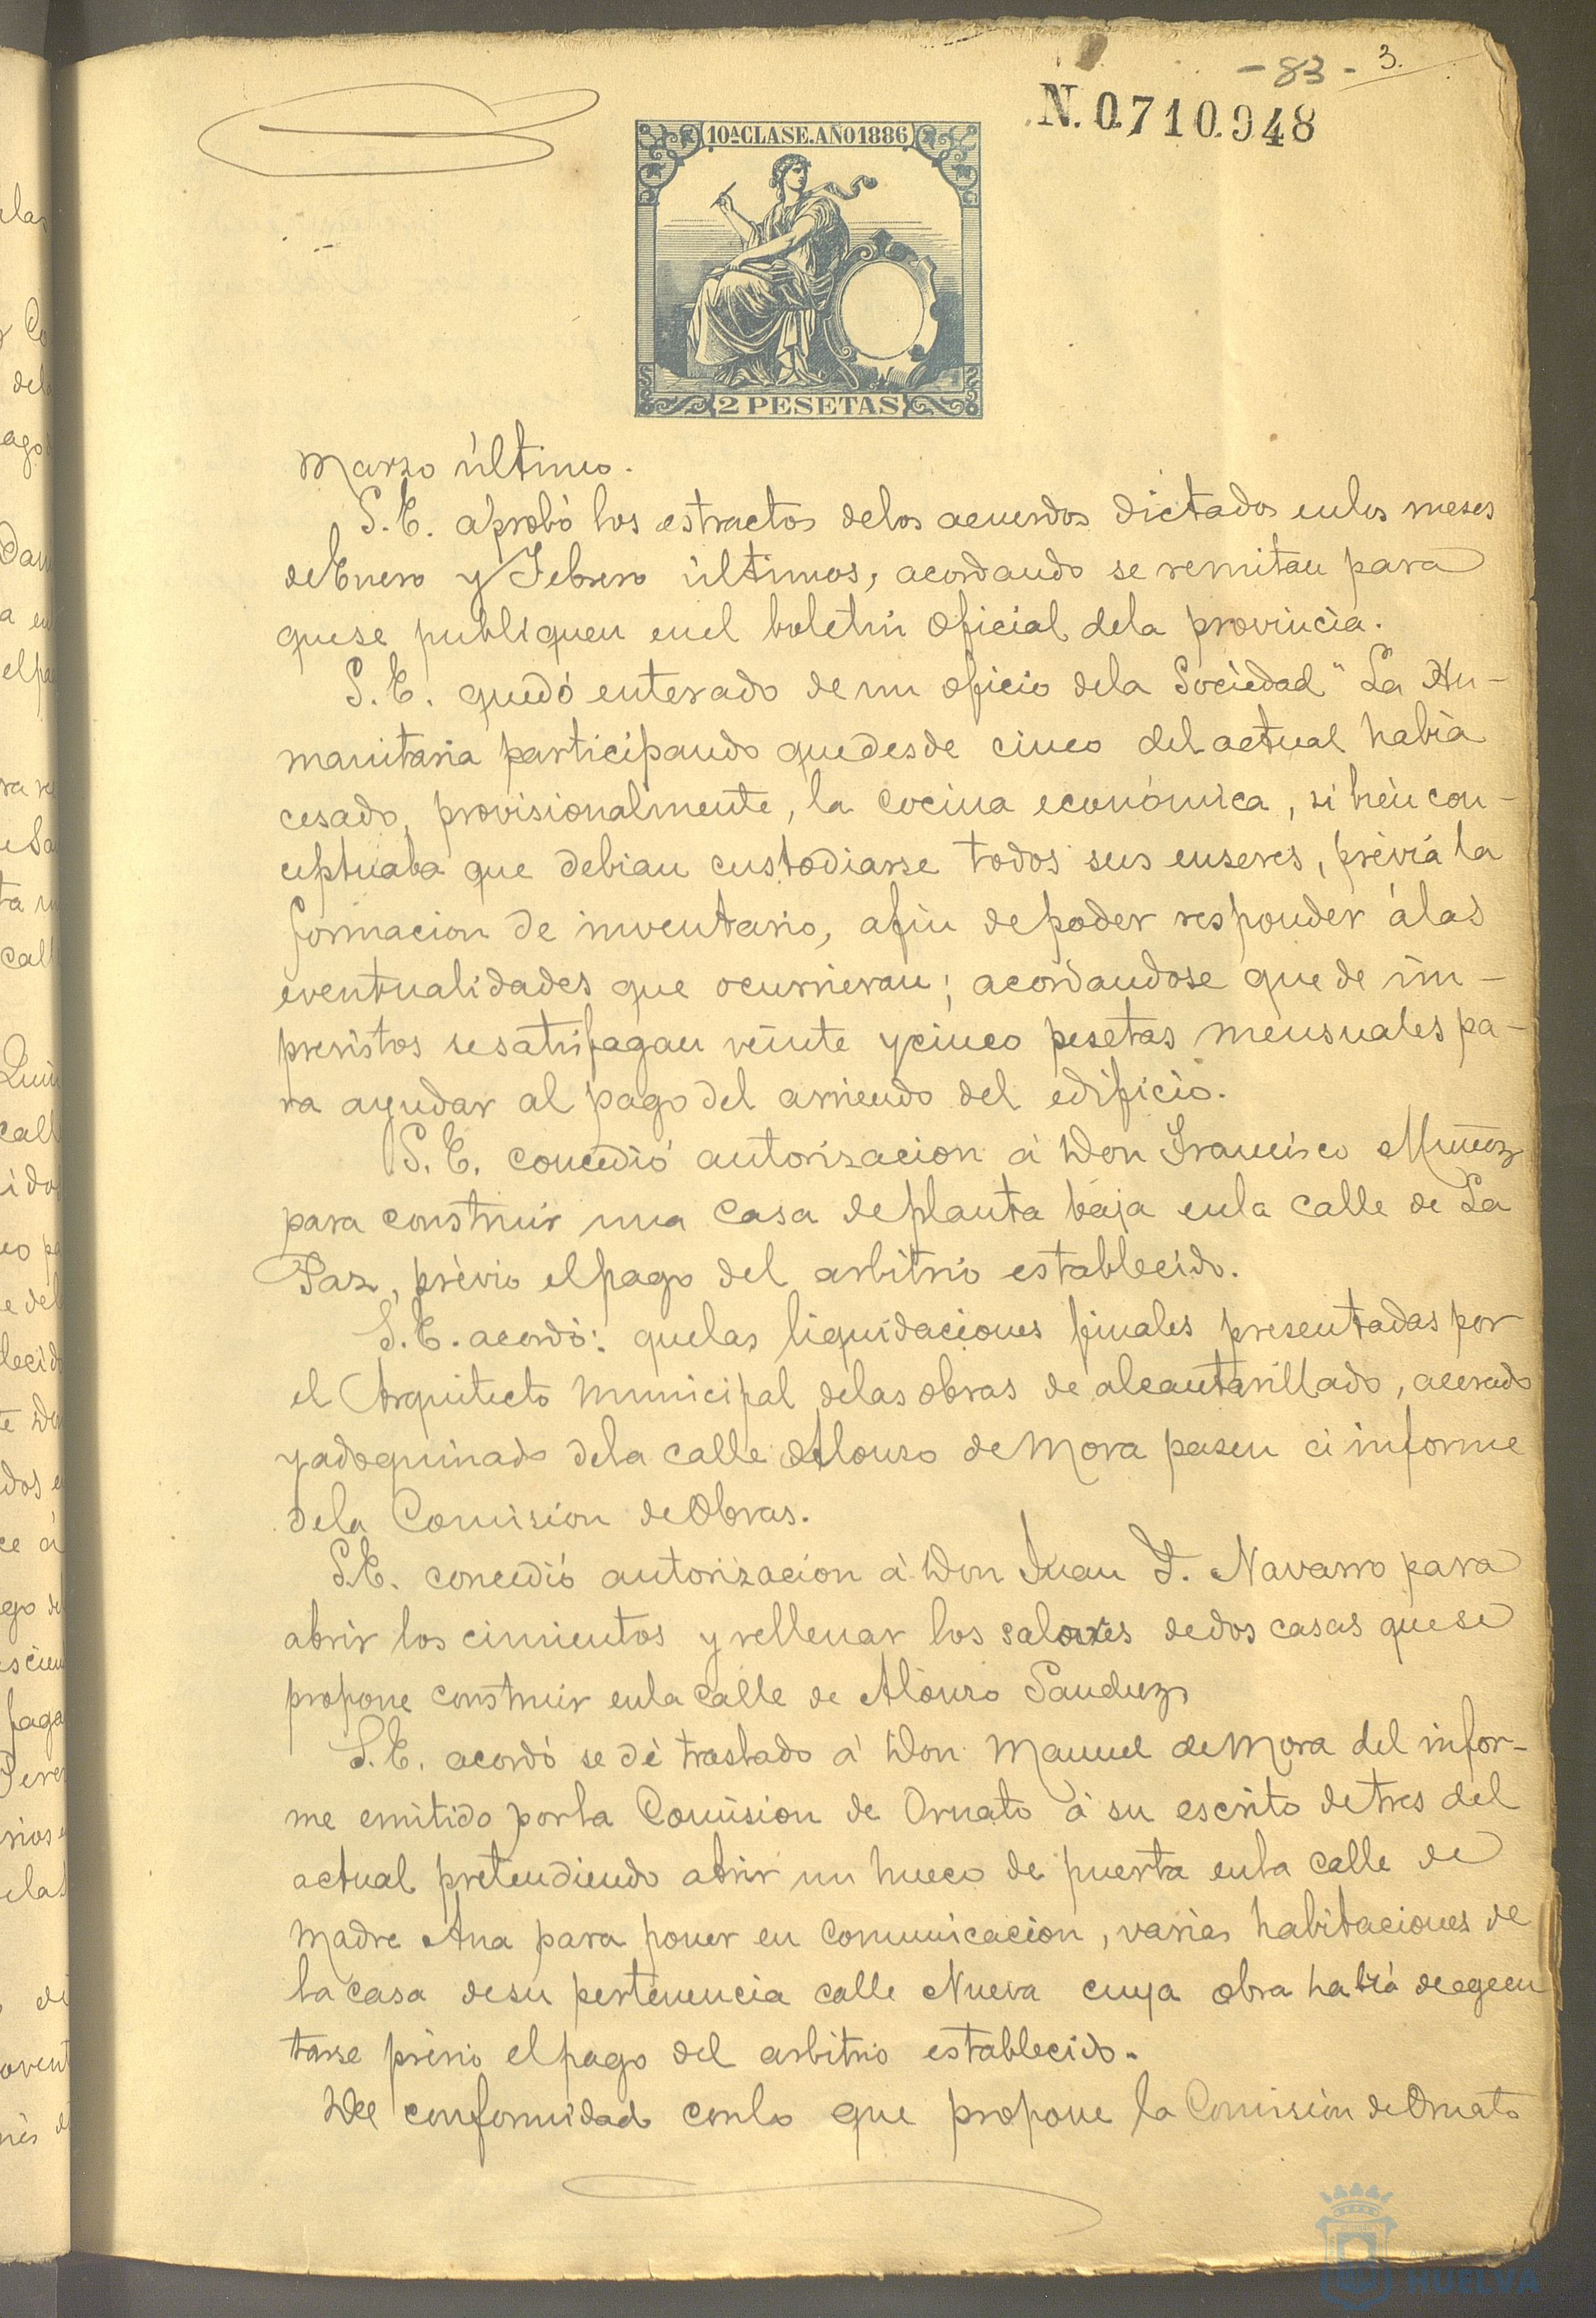 - 83 - 3.
N. 0.710.948
10ª CLASE. AÑO 1886
2 PESETAS
Marzo último.
S. E. aprobó los estractos delos acuerdos dictados enlos meses
de Enero y Febrero últimos, acordando se remitan para
quese publiquen enel boletin oficial dela provincia.
S. E. quedó enterado de un oficio dela Sociedad "La Hu-
manitaria participando quedesde cinco del actual habia
cesado, provisionalmente, la cocina económica, si bien con-
ceptuaba que debian custodiarse todos sus enseres, prévia la
formacion de inventario, afin depoder responder álas
eventualidades que ocurrieran; acordandose que de im-
previstos sesatisfagan veinte ycinco pesetas mensuales pa-
ra ayudar al pago del arriendo del edificio.
S. E. concedió autorizacion á Don Francisco Muñoz
para construir una casa deplanta baja enla calle de La
Paz, prévio elpago del arbitrio establecido.
S. E. acordó: quelas liquidaciones finales presentadas por
el Arquitecto Municipal delas obras de alcantarillado, acerado
yadoquinado dela calle Alonso de Mora pasen á informe
dela Comision de Obras.
S.E. concedió autorizacion á Don Juan F. Navarro para
abrir los cimientos y rellenar los salones dedos casas quese
propone construir enla calle de Alonso Sanchez
S. E. acordó se dé traslado á Don Manuel de Mora del infor-
me emitido porla Comision de Ornato á su escrito detres del
actual pretendiendo abrir un hueco de puerta enla calle de
Madre Ana para poner en comunicacion, varias habitaciones de
la casa desu pertenencia calle Nueva cuya obra habrá deegecu
tarse prévio elpago del arbitrio establecido.
De conformidad conlo que propone la Comision de Ornato
HUELVA